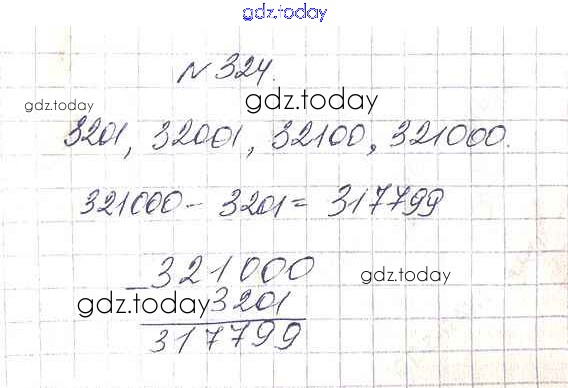 gdz.today
№ 324.
gdz.today
gdz.today
3201, 32001, 32100, 321000.
321000 - 3201 = 317799
- 321000
gdz.today
gdz.today 3201
317799
gdz.today